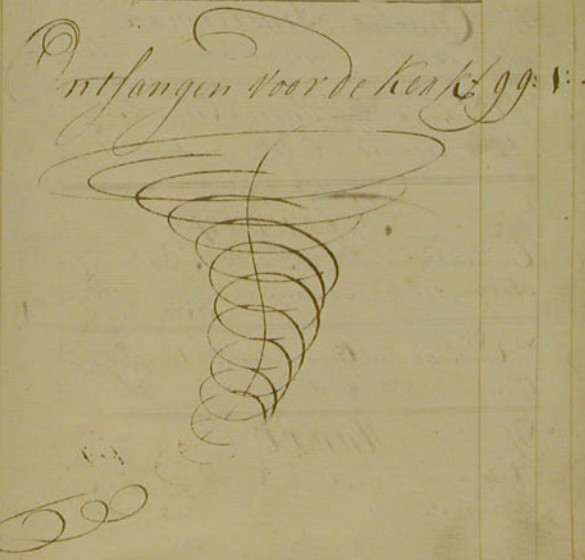 Ontfangen voor de Kerk ƒ 99: 1: -